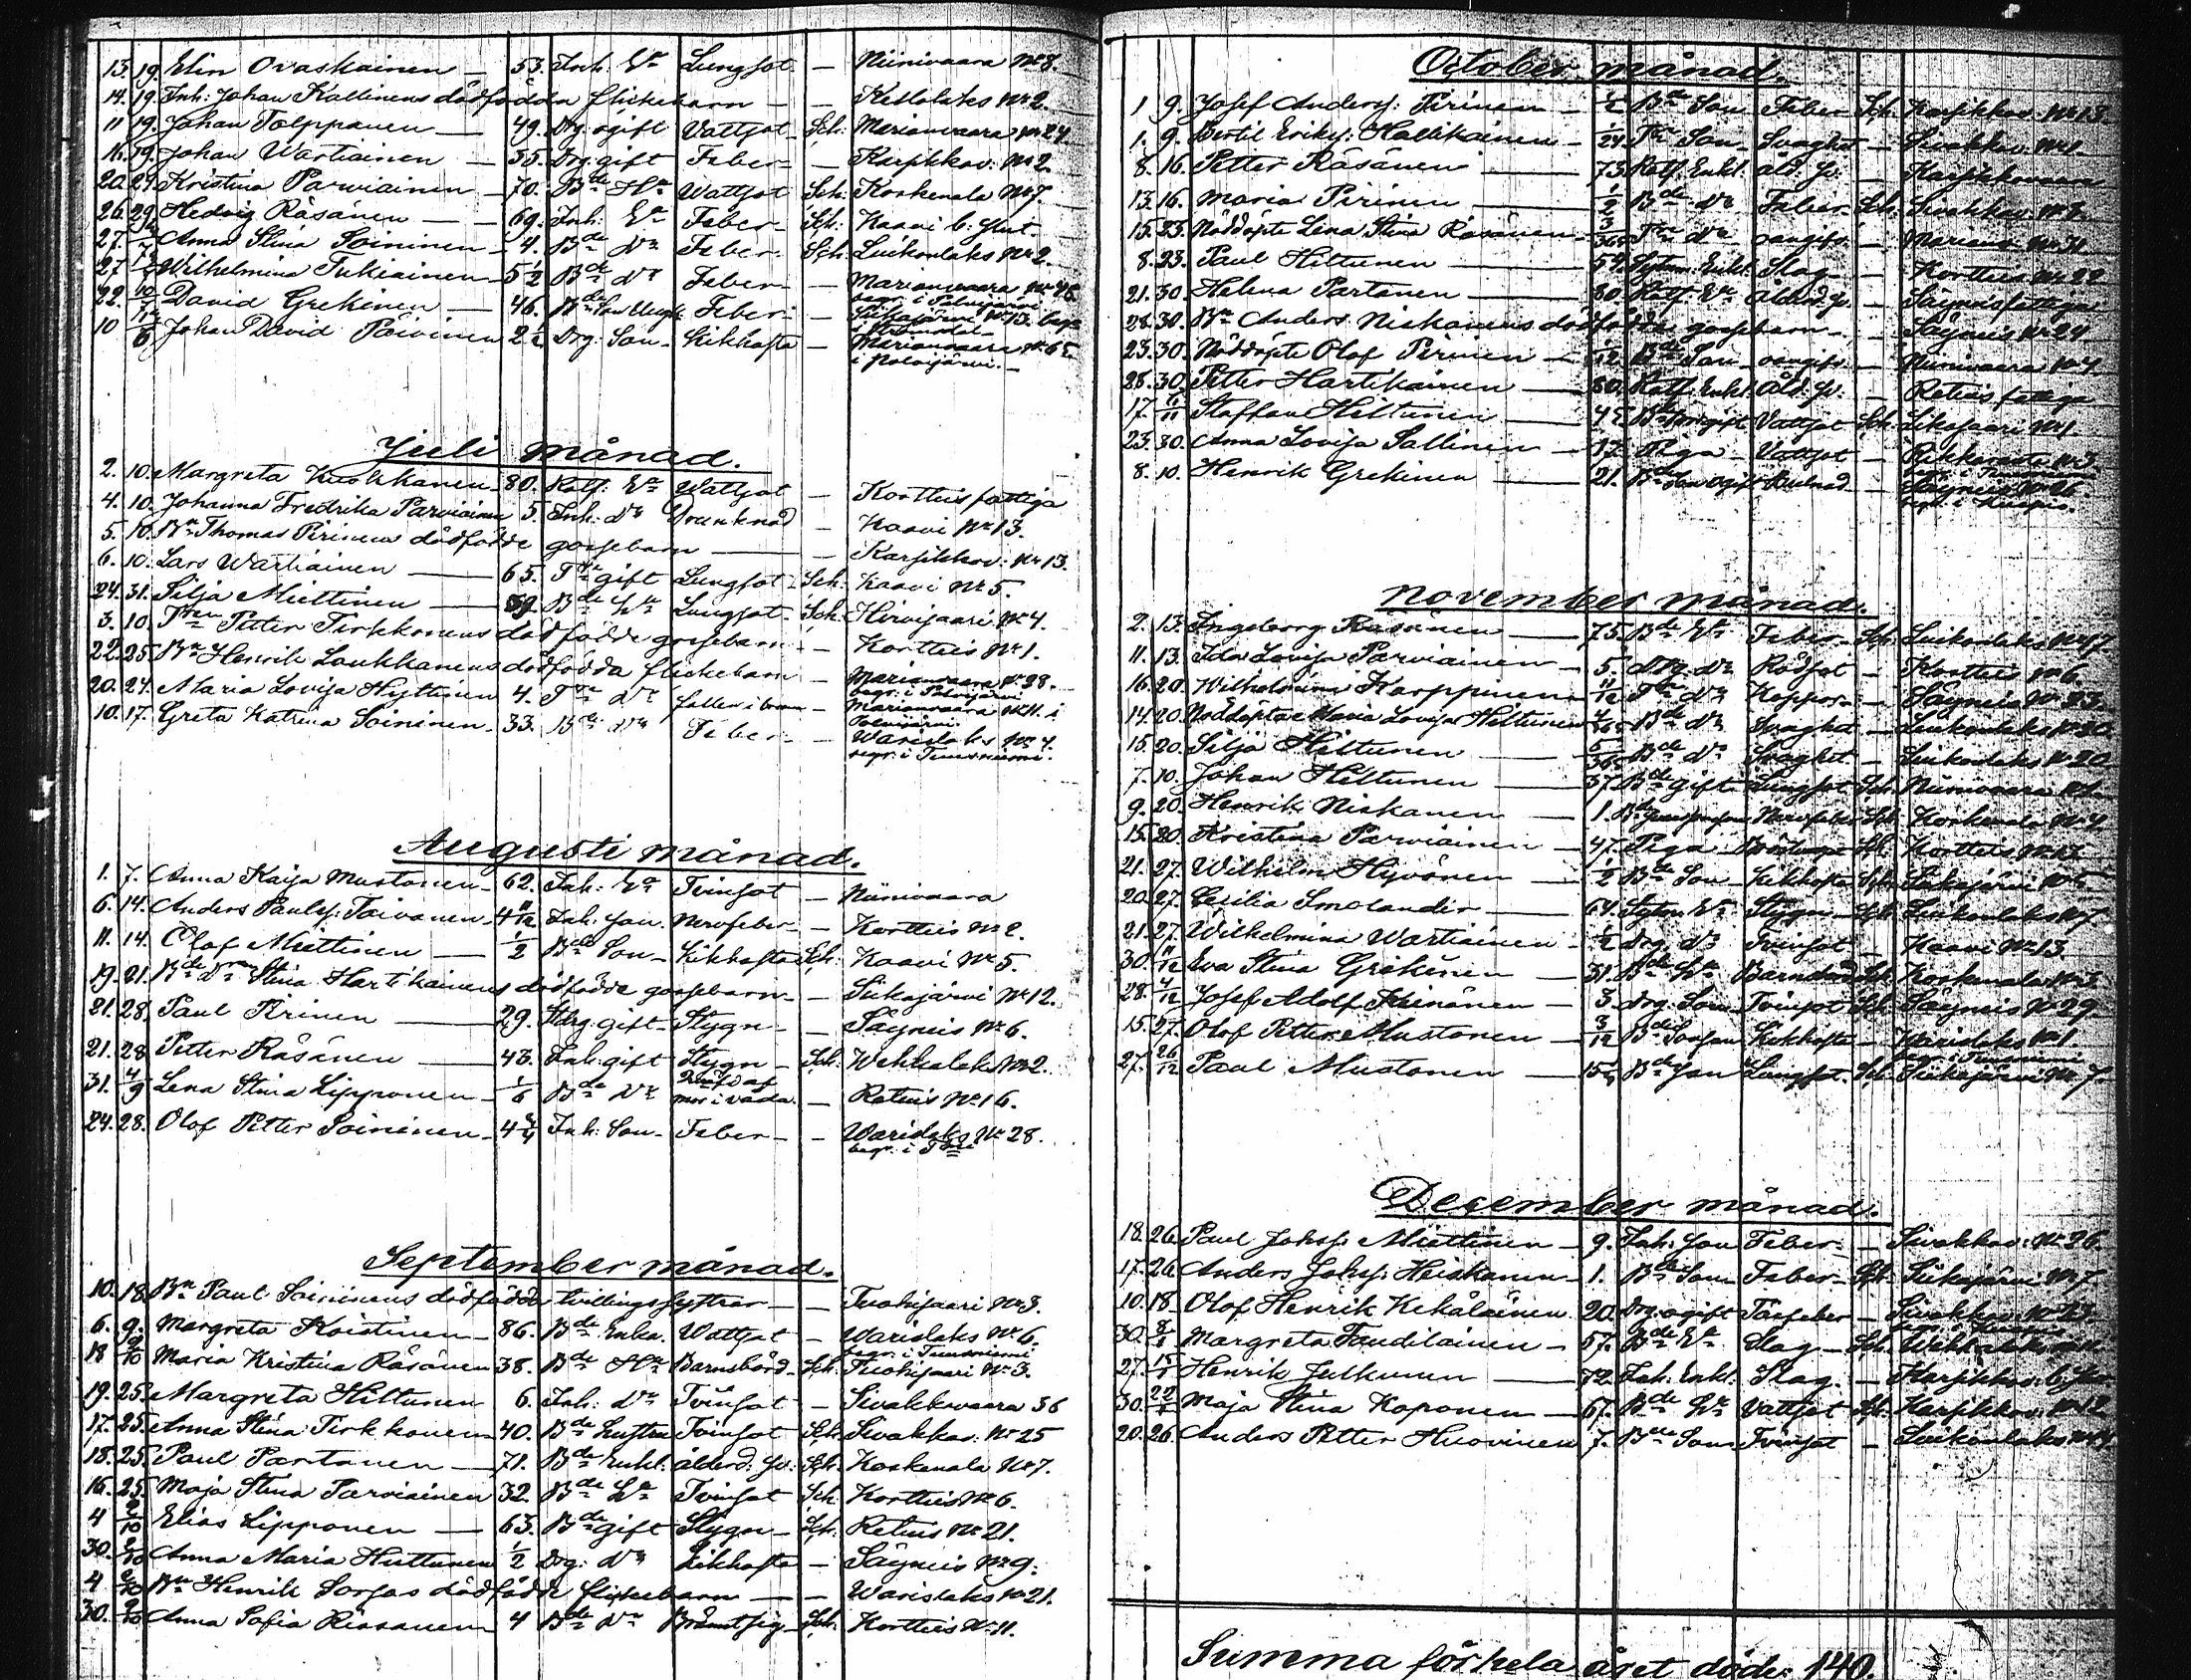 13. 19. Elin Ovaskainen — 53. Inh. Ea Lungsot — Niinivaara No 8.
14. 19. Inh: Johan Kallinens dödfödda flickebarn — — Ketlolaks No 2.
11 19. Johan Tolppanen — 49. Drg. ogift Vattsot Sch: Marianvaara No 24.
16. 19. Johan Wartiainen — 55. Drg. gift Feber — Karsikkov: No 2.
20. 29. Kristina Parviainen — 70. Bde Hu Wattsot Sch. Koskenala No 7.
26. 29. Hedvig Räsänen — 69. Inh: Ea Feber Sch: Kaavi b:
27. Anna Stina Soininen — 4. Bde Dr Feber Sch. Luikonlaks No 2.
27. Wilhelmina Tukiainen 5 1/2 Bde Dr Feber — Marianvaara No 46.
begr. i Polvijärvi
22. 10/7 David Grekinen — 46. Feber — Siikajärvi No 13. begr.
10 Johan David Päivinen 2 1/2 Drg. Son Kikhosta — Marianvaara No 65.
i Polvijärvi.
Juli månad.
2. 10. Margreta Kuokkanen 80. Rotf: Ea Wattsot — Kortteis fattiga
4. 10. Johanna Fredrika Parviainen 5. Inh: Dr Drunknad — Kaavi No 13.
5. 10. Bn Thomas Pirinens dödfödde gossebarn — Karsikkov: No 13.
6. 10. Lars Wartiainen — 65. Tn gift Lungsot Sch: Kaavi No 5.
24. 31. Silja Miettinen — 59. Bde Ea Lungsot Sch. Hirvisaari No 4.
3. 10. Petter Tirkkonens dödfödde gossebarn — Kortteis No 1.
22. 25. Bn Henrik Loukkanens dödfödda flickebarn — Marianvaara No 38.
begr. i Polvijärvi
20. 24. Maria Lovisa Hyttinen 4. Dr fallen i brunn — Marianvaara No 11. i
Polvijärvi.
10. 17. Greta Katrina Soininen 33. Bde Dr Feber — Warislaks No 4.
begr. i Tuusniemi.
Augusti månad.
1. 7. Anna Kaisa Mustonen 62. Inh: Ea Tvinsot — Niinivaara
6. 14. Anders Paulss: Toivanen 4 11/12 Inh: Son Nervfeber — Kortteis No 2.
11. 14. Olof Miettinen — 1/2 Bde Son Kikhosta Sch: Kaavi No 5.
19. 21. Stina Hartikainens dödfödde gossebarn — Siikajärvi No 12.
21. 28. Paul Pirinen — 29. gift Stygn — Säyneis No 6.
21. 28. Petter Räsänen — 43. Inh: gift Stygn Sch. Wehkalaks No 2.
31. 4/9 Lena Stina Lipponen 1/6 Bde Dr qväfd af
mor i våda — Retuis No 16.
24. 28. Olof Petter Soininen 4 3/4 Inh: Son Feber — Warislaks No 28.
begr. i
September månad.
10. 18. Bn Paul Soininens dödfödde tvillingssystrar — — Tuohisaari No 3.
6. 9. Margreta Koistinen 86. Bde Enka Wattsot — Warislaks No 6.
begr. i Tuusniemi
18 2/10 Maria Kristina Räsänen 38. Bde Hu Barnsbörd Sch. Tuohisaari No 3.
19. 25. Margreta Hiltunen 6. Inh: Dr Tvinsot — Sivakkavaara 36
17. 25. Anna Stina Tirkkonen 40. Bde hustru Tvinsot Sch. Sivakkav: No 25
18. 25. Paul Partanen — 71. Bde Enkl: ålderd: sv: Sch. Koskenala No 7.
16. 25. Maja Stina Parviainen 32. Bde Hu Tvinsot Sch. Kortteis No 6.
4 2/10 Elias Lipponen — 63. Bde gift Stygn Sch. Retuis No 21.
30. 2/10 Anna Maria Huttunen 1/2 Drg: Dr Kikhosta — Säyneis No 9.
4 2/10 Bn Henrik Sorsas dödfödde flickebarn — — Warislaks No 21.
30. 9/10 Anna Sofia Räsänen 4 Bde Dr Sch. Kortteis No 11.
October månad.
1 9. Josef Anderss: Pirinen 1/2 Bde Son Feber Sch. Karsikkov: No 13.
1. 9. Bertil Erikss: Hallikainen Son Svaghet — Sivakkav: No 1.
8. 16. Petter Räsänen — 73. Rotf. Enkl. åld. sv. — Karsikkovaara
13. 16. Maria Pirinen — 1/2 Bde Dr Feber Sch. Sivakkav. No 8.
15. 23. Nöddöpte Lena Stina Räsänen 3/365 Dr oangifv. — Marianv. No 31.
8. 23. Paul Hiltunen — 59. Enkl. Slag — Kortteis No 22.
21. 30. Helena Partanen — 80. Rotf. Ea Ålderd. sv. — Säyneis fattiga
28. 30. Bn Anders Niskanens dödfödde gossebarn — Säyneis No 24
23. 30. Nöddöpte Olof Pirinen — 1/12 Bde Son oangifv. — Niinivaara No 4
28. 30. Petter Hartikainen — 80. Rotf. Enkl. Åld. sv. — Retuis fattiga
17. 6/11 Staffan Hiltunen — 45 gift Vattsot Sch. Likosaari No 1.
23. 30. Anna Lovisa Sallinen — 17. Piga Vattsot —
8. 10. Henrik Grekinen — 21. ogift — Säyneis No 26
begr. i Kuopio.
November månad.
2. 13. Ingeborg Räsänen — 75. Bde Ea Feber Sch. Luikonlaks No 17
11. 13. Ida Lovisa Parviainen 5. Drg. Dr Rödsot — Kortteis No 6.
16. 20. Wilhelmina Karppinen 11/12 Dr Koppor — Säyneis No 33.
14. 20. Nöddöpta Maria Lovisa Hiltunen Bde Dr Svaghet — Luikonlaks No 20
15. 20. Silja Hiltunen — Bde Dr Svaghet — Luikonlaks No 20
7. 10. Johan Hiltunen — 37. Bde gift Lungsot Sch. Niinivaara
9. 20. Henrik Niskanen — 1. Nervfeber Sch. Koskenala No 4
15. 20. Kristina Parviainen — 47. Piga Sch. Kortteis No 13
21. 27. Wilhelm Hyvönen — 1/2 Bde Son Kikhosta Sch. Siikajärvi No 5
20. 27. Cecilia Smolander — 64. Ea Stygn Sch. Luikonlaks No 7.
21. 27. Wilhelmina Wartiainen 1/2 Drg. Dr Tvinsot — Kaavi No 13.
30. 11/12 Eva Stina Grekinen — 31. Bde Hu Barnsbörd Sch. Koskenala No 3
28. 4/12 Josef Adolf Keinänen — 3. Drg. Son Tvinsot Sch. Säyneis No 29
15. 27. Olof Petter Mustonen — 3/12 Kikhosta — Warislaks No 1.
begr. i Tuusniemi
27. 26/12 Paul Mustonen — Bde Son Lungsot Sch. Siikajärvi No 7.
December månad.
18. 26. Paul Johss: Miettinen — 9. Inh: Son Feber — Sivakkav: No 26.
17. 26. Anders Johss: Heiskanen 1. Bde Son Feber Sch. Siikajärvi No 7.
10. 18. Olof Henrik Kekäläinen 20. Drg. ogift Tärfeber — Sivakkav. No 23.
30. 8/1 Margreta Tanditainen 57. Bde Ea Slag Sch. Wehkalaks
27. 15/1 Henrik Julkunen — 72. Inh. Enkl. Slag — Karsikkov. b.
30. 22/1 Maja Stina Koponen — 67. Bde Ea Vattsot Sch. Karsikkov. No 12
20. 26. Anders Petter Huovinen 7. Bde Son Tvinsot — Luikonlaks
Summa för hela året döde 140.